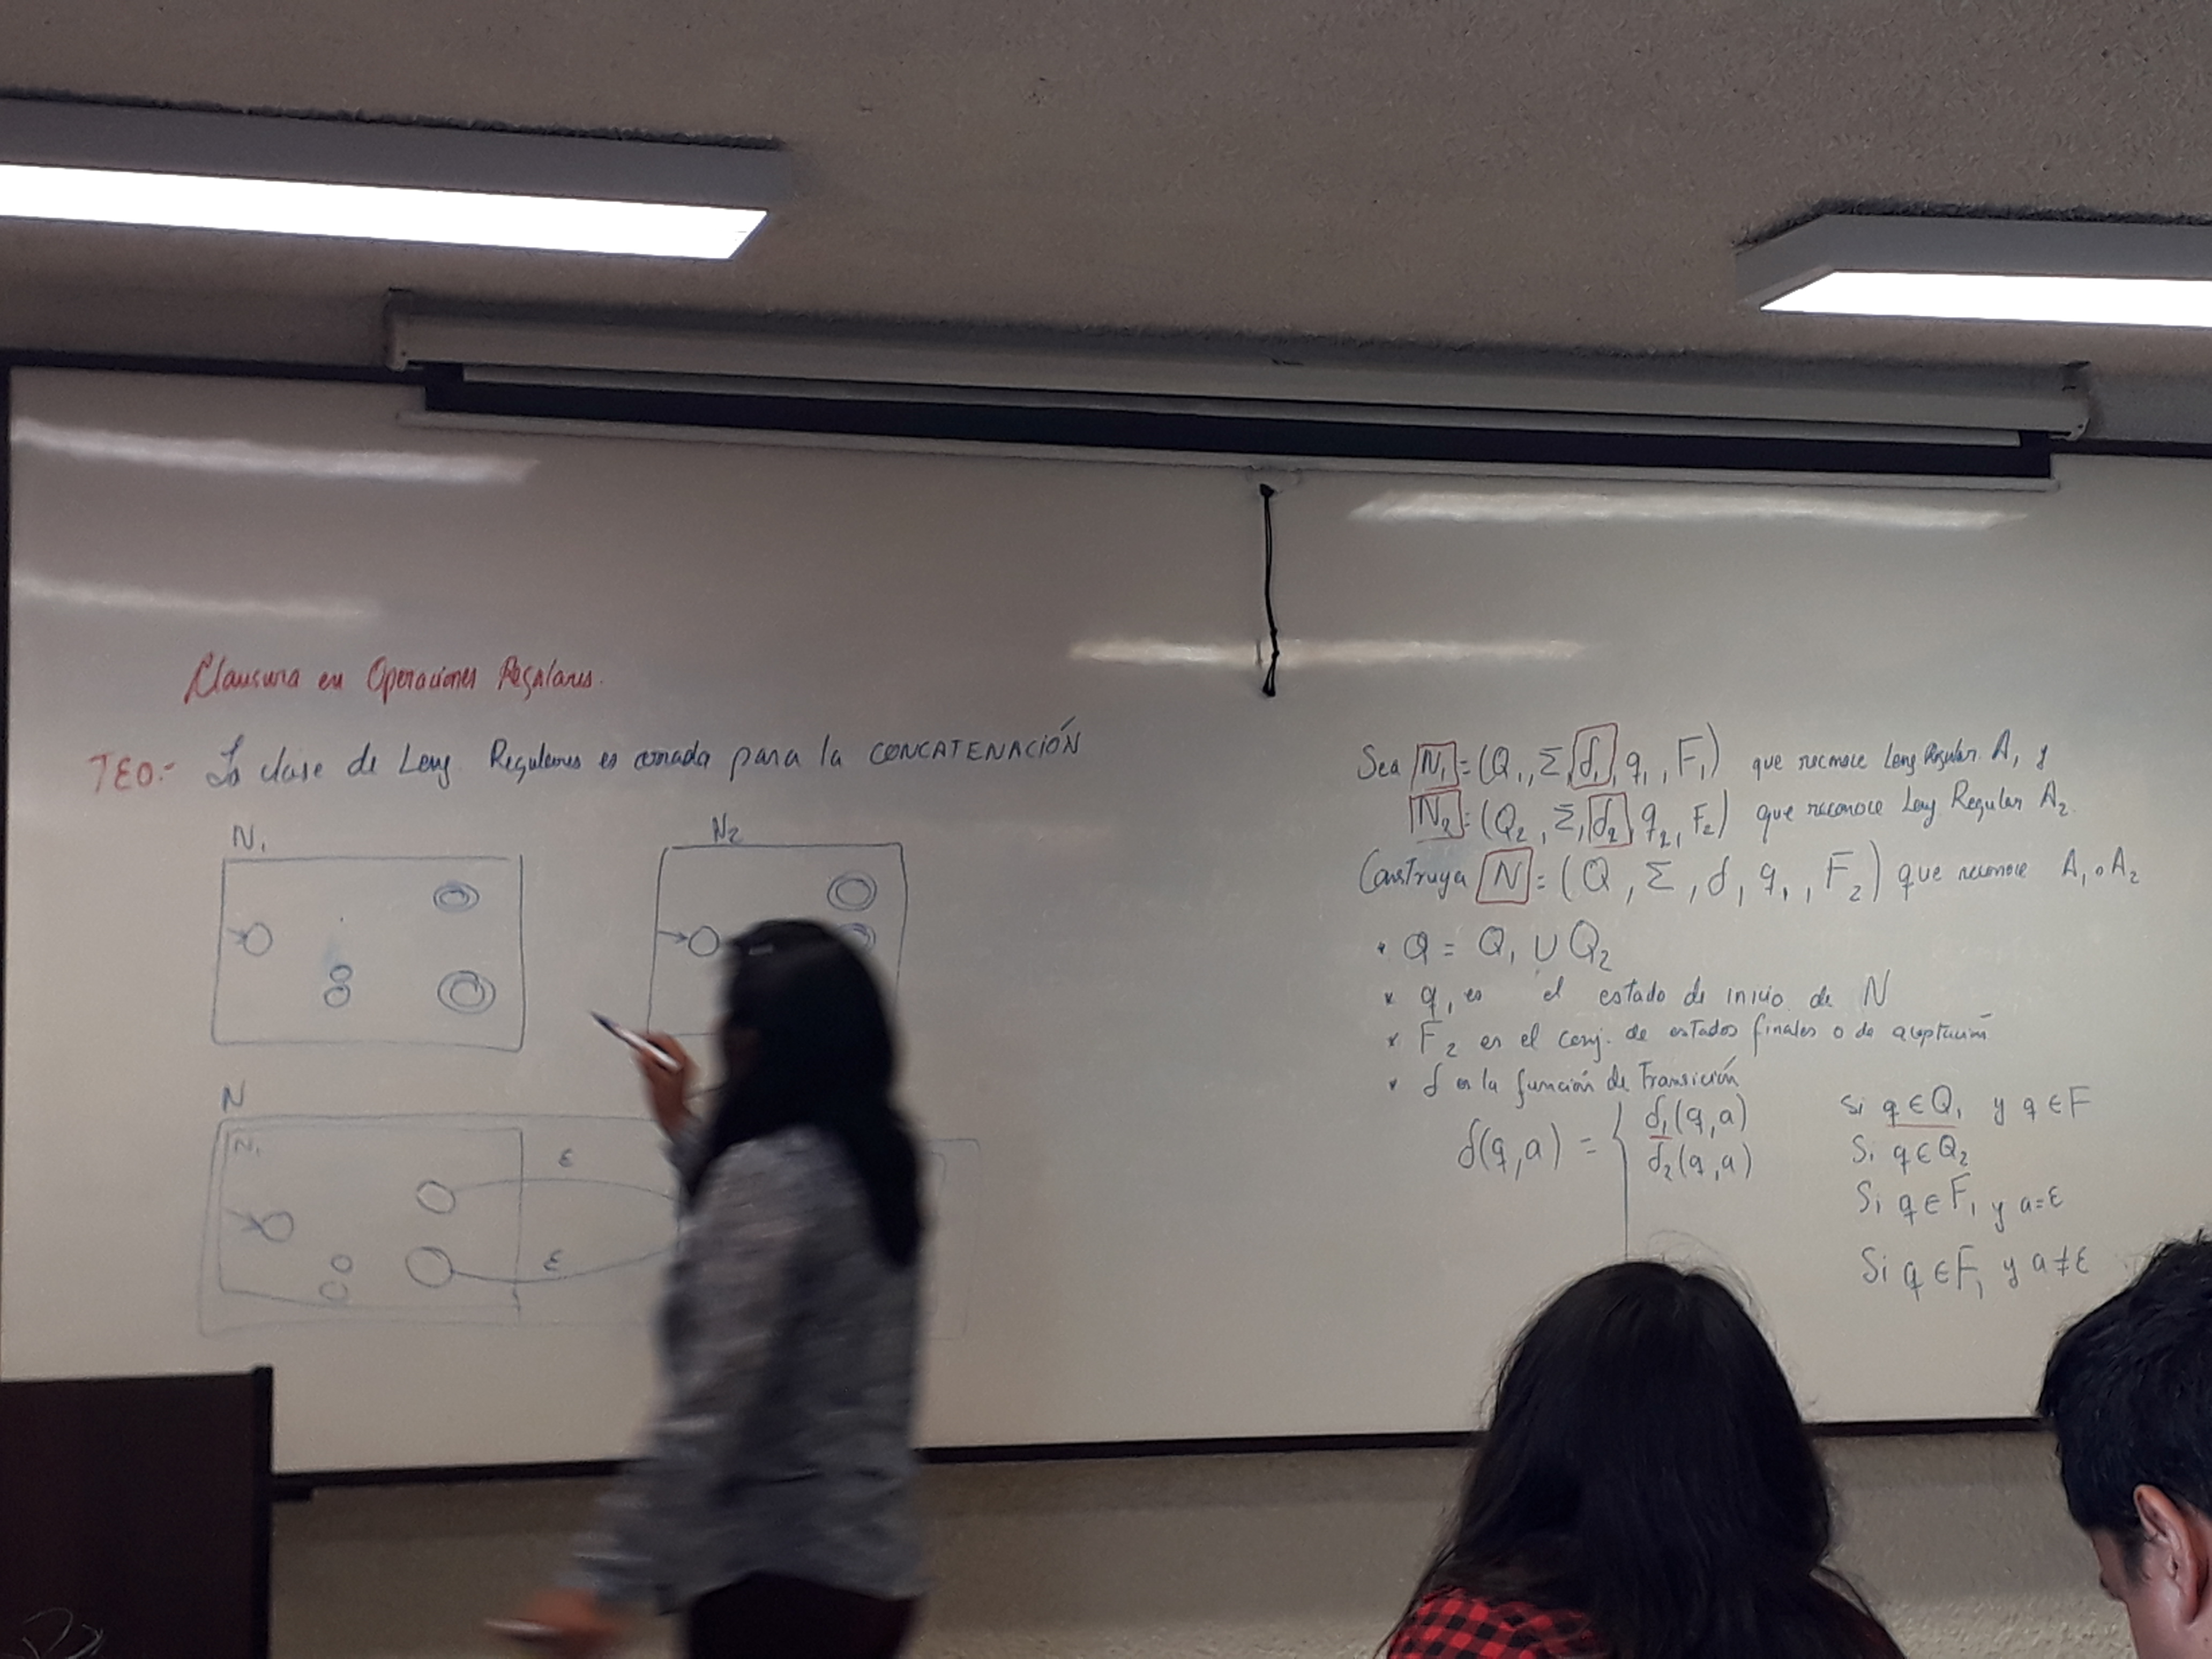 Clausura en Operaciones Regulares.
TEO:- La clase de Leng Regulares es cerrada para la CONCATENACIÓN
N₁
N₂
N
N₁
ε
ε
Sea N₁ = (Q₁, Σ, δ₁, q₁, F₁) que reconoce Leng Regular A₁ y
N₂ = (Q₂, Σ, δ₂, q₂, F₂) que reconoce Leng Regular A₂.
Construya N = (Q, Σ, δ, q₁, F₂) que reconoce A₁ ∘ A₂
* Q = Q₁ ∪ Q₂
* q₁ es el estado de inicio de N
* F₂ es el conj. de estados finales o de aceptación
* δ es la función de Transición
δ(q,a) = { δ₁(q,a) Si q ∈ Q₁ y q ∈ F
δ₂(q,a) Si q ∈ Q₂
Si q ∈ F₁ y a = ε
Si q ∈ F₁ y a ≠ ε